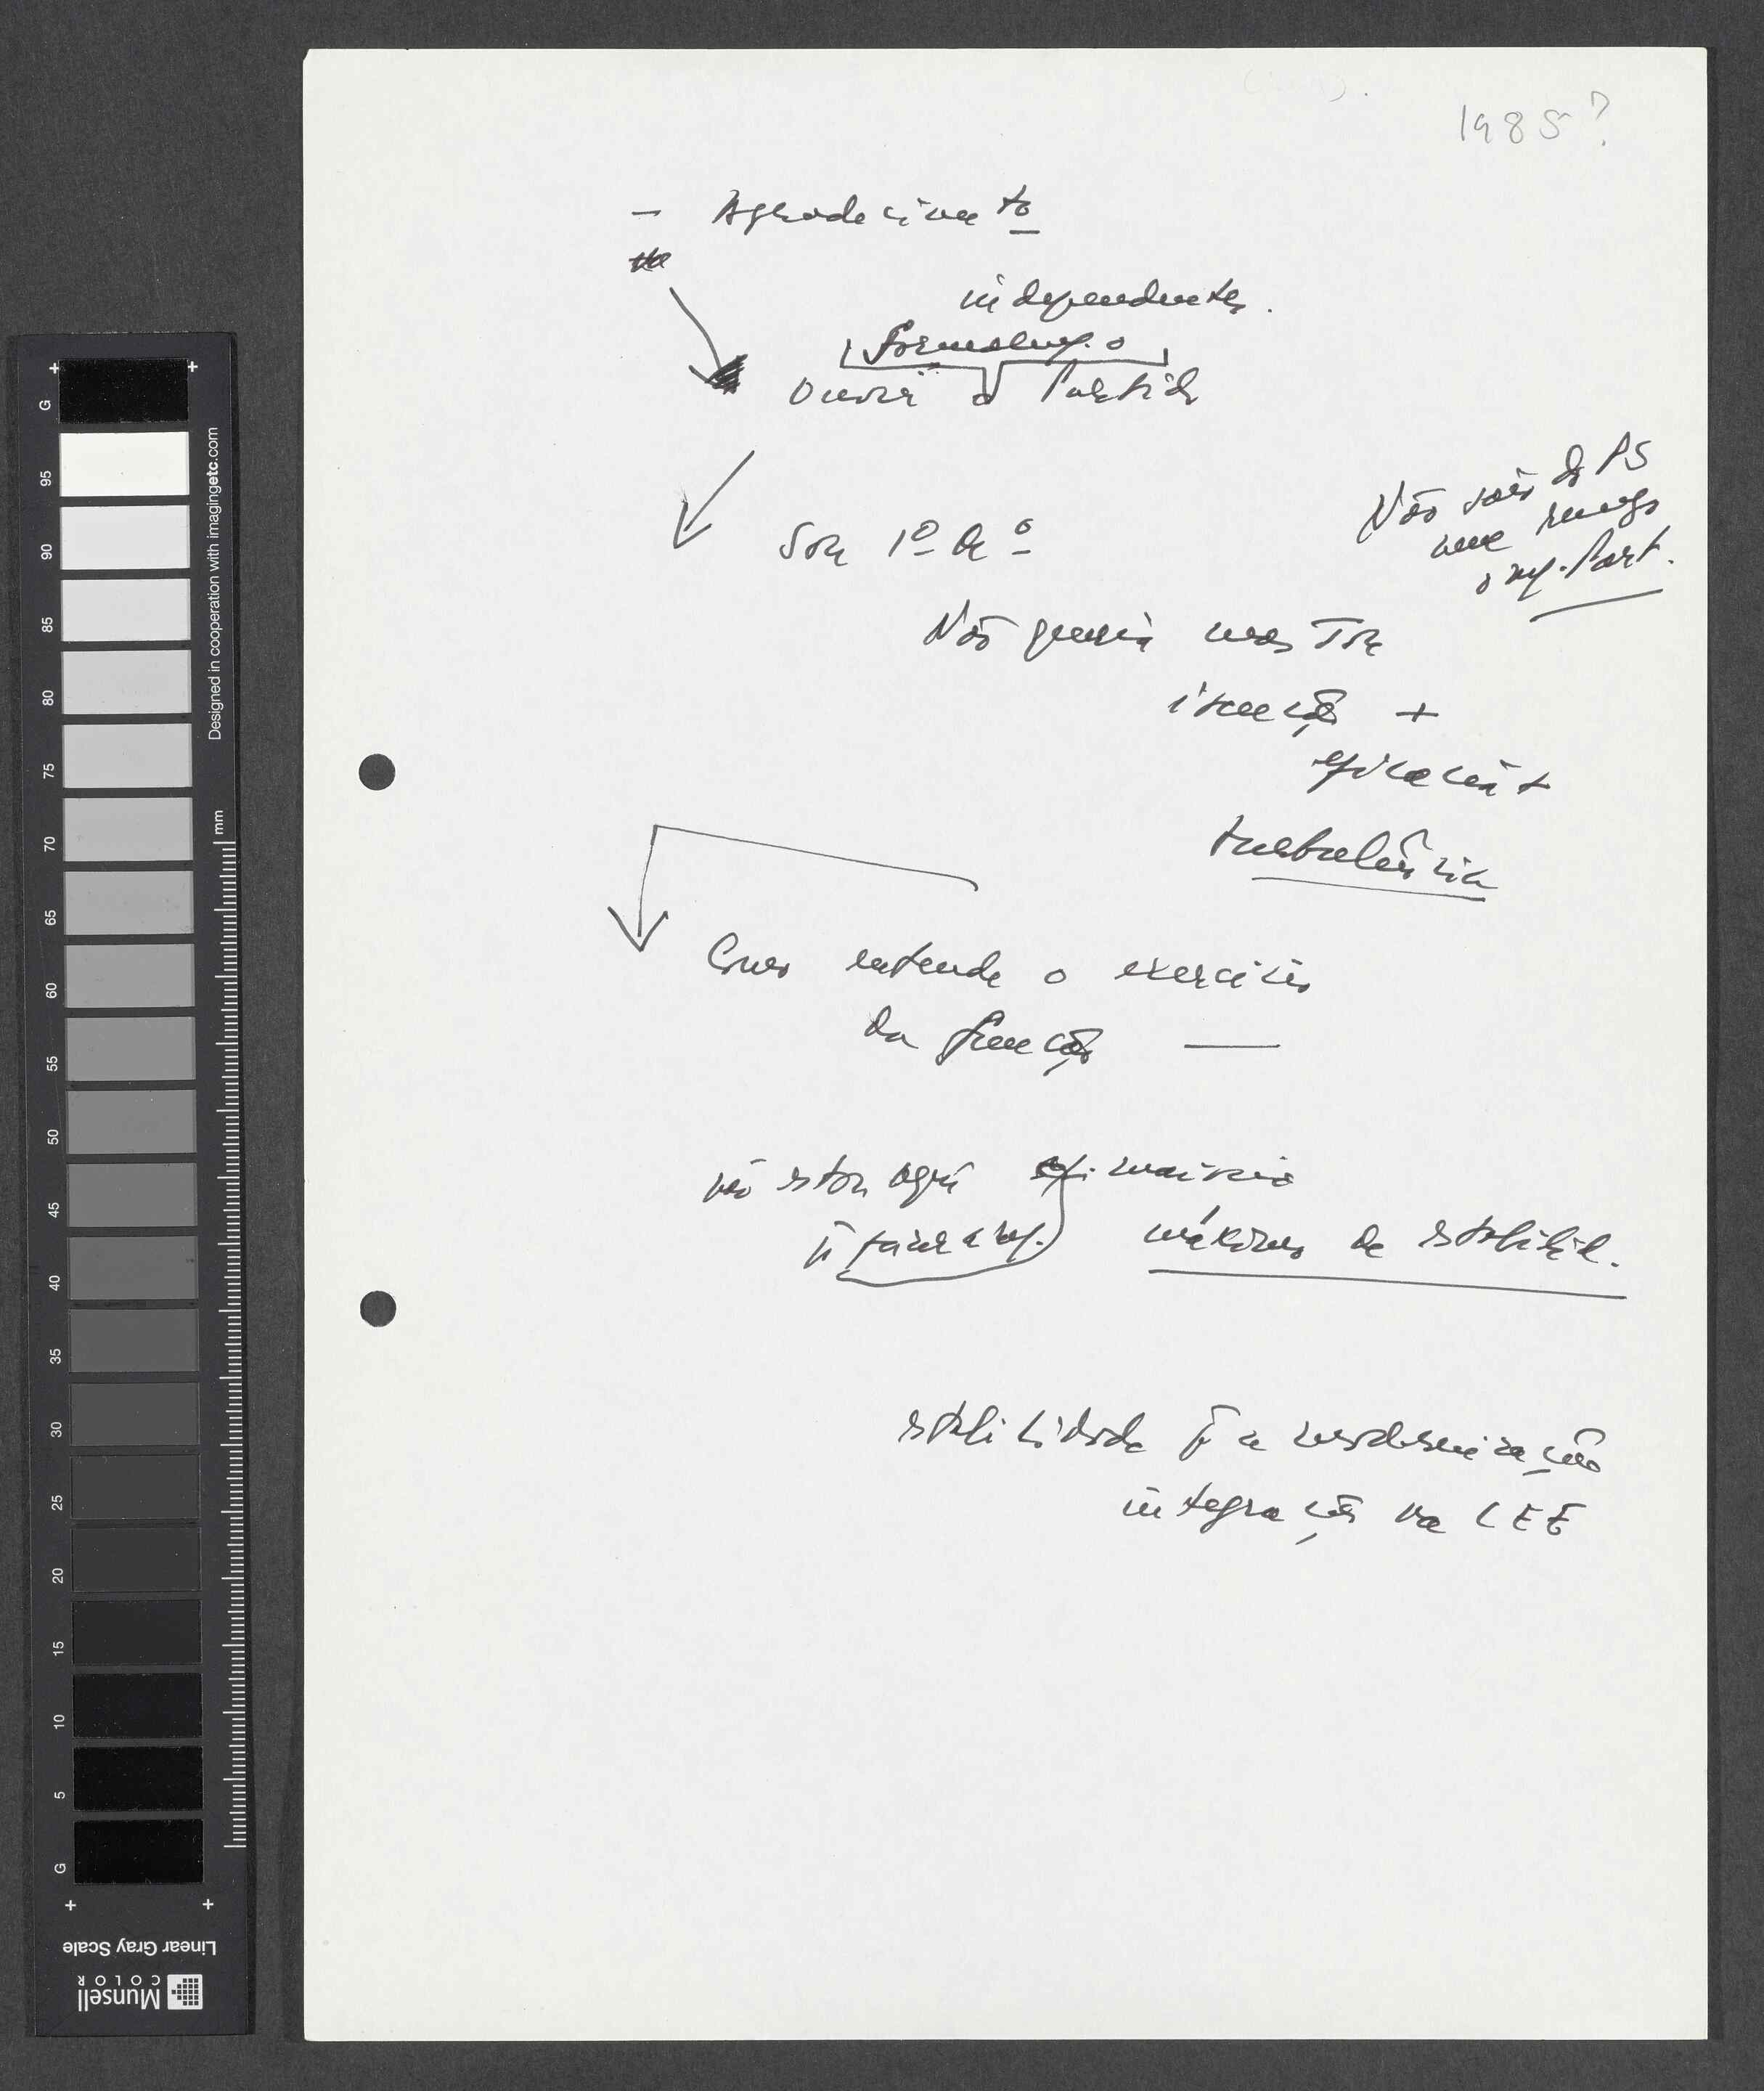 1985?
— Agradecimento
independentes.
formalmt. o
Ouvir o Partido
Não saio do PS
nem renego
Part.
Sou 1º de º
Não queria mas
isenção +
eficácia +
turbulência
Como entende o exercício
da função —
não estou aqui
máximo de estabilid.
estabilidade p a modernização
integração na CEE
Designed in cooperation with imagingetc.com
mm
G
95
90
85
80
75
70
65
60
55
50
45
40
35
30
25
20
15
10
5
G
Linear Gray Scale
Munsell
COLOR